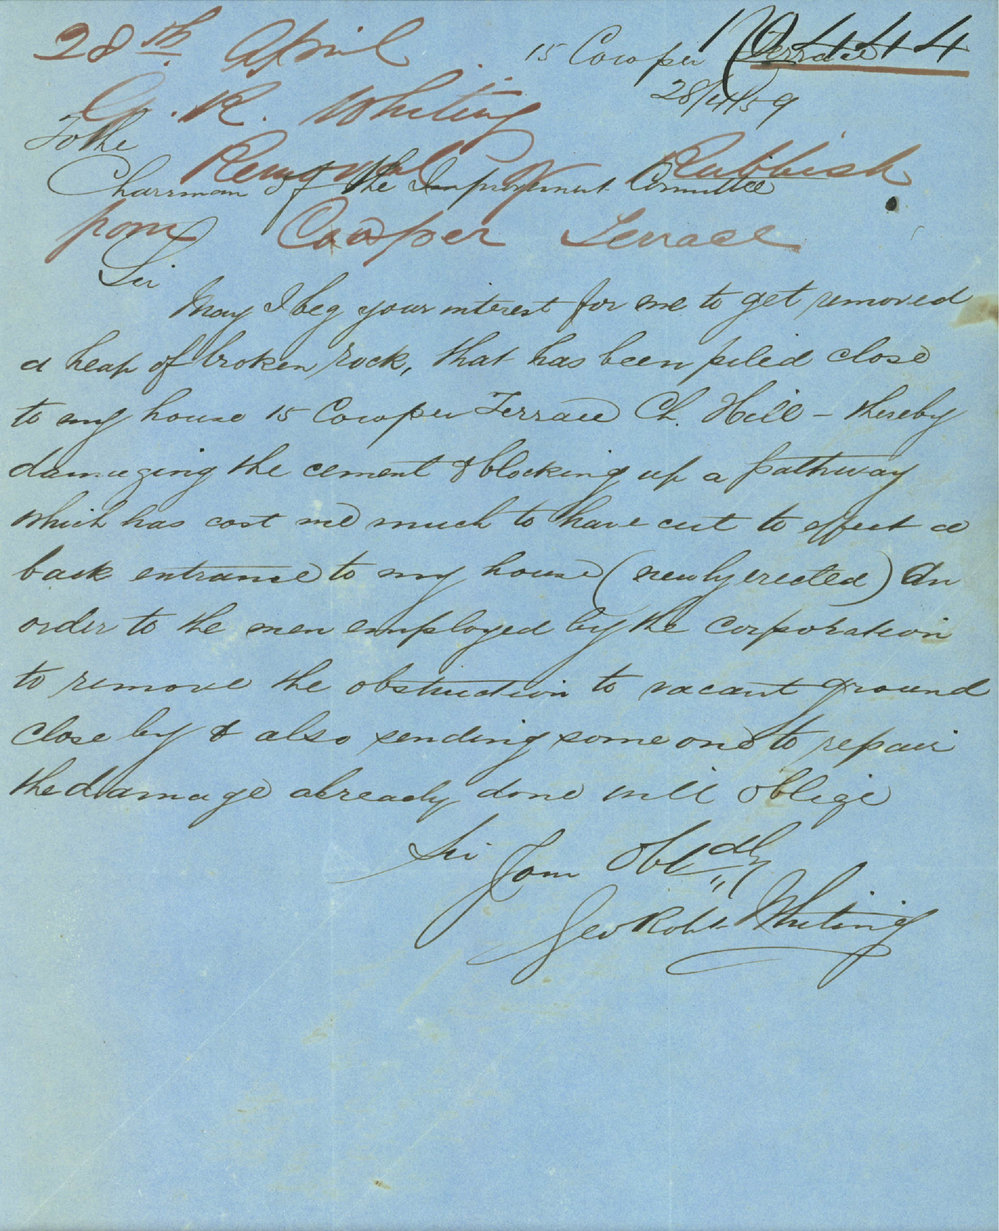 28th April
15 Cowper Terrace
444
28/4/59
G. R. Whiting
To the
Removal of Rubbish
Chairman of the Improvement Committee
from Cowper Terrace
Sir
May I beg your interest for me to get removed
a heap of broken rock, that has been piled close
to my house 15 Cowper Terrace Ch. Hill - thereby
damaging the cement & blocking up a pathway
which has cost me much to have cut to effect a
back entrance to my house (newly erected) An
order to the men employed by the corporation
to remove the obstruction to vacant ground
close by & also sending some one to repair
the damage already done will oblige
Sir
I am Obtdly
Geo Robt Whiting